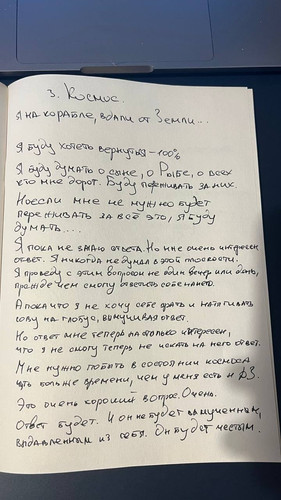 3. Космос.
Я на корабле, вдали от Земли...
Я буду хотеть вернуться – 100%
Я буду думать о сыне, о Рыбе, о всех
кто мне дорог. Буду переживать за них.
Но если мне не нужно будет
переживать за всё это, я буду
думать....
Я пока не знаю ответа. Но мне очень интересен
ответ. Я никогда не думал в этой плоскости.
Я проведу с этим вопросом не один вечер или день,
прежде чем смогу ответить себе на него.
А пока что я не хочу себе врать и натягивать
сову на глобус, вымучивая ответ.
Но ответ мне теперь настолько интересен,
что я не смогу теперь не искать на него ответ.
Мне нужно побыть в состоянии космоса
чуть больше времени, чем у меня есть на ДЗ.
Это очень хороший вопрос. Очень.
Ответ будет. И он не будет вымученным,
выдавленным из себя. Он будет честным.